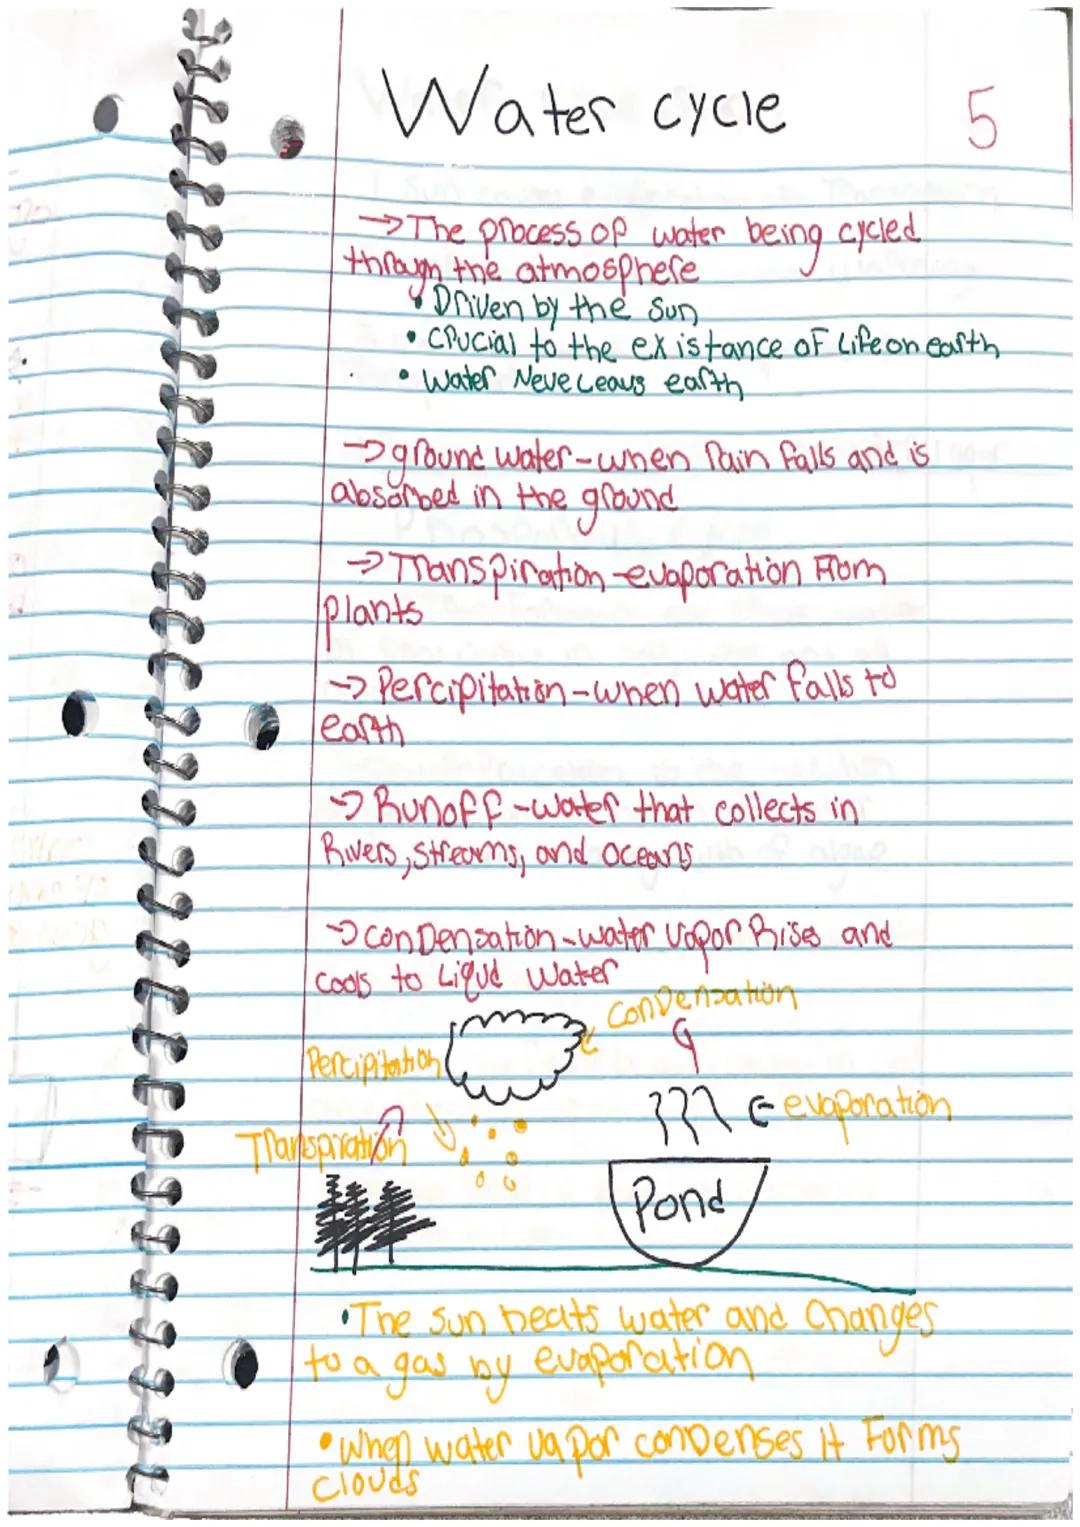 Water cycle
5
→The process of water being cycled
through the atmosphere
• Driven by the sun
• Crucial to the existance of life on earth
• Water Neve Leavs earth
→ground water-when Rain falls and is
absorbed in the ground
→Transpiration-evaporation From
plants
→Percipitation-when water falls to
earth
→Runoff-water that collects in
Rivers, streams, and oceans
→conDensation-water vapor Rises and
cools to Liqud Water
conDensation
Percipitation
evaporation
Transpiration
Pond
•The sun heats water and changes
to a gas by evaporation
•when water vapor conDenses it Forms
clouds